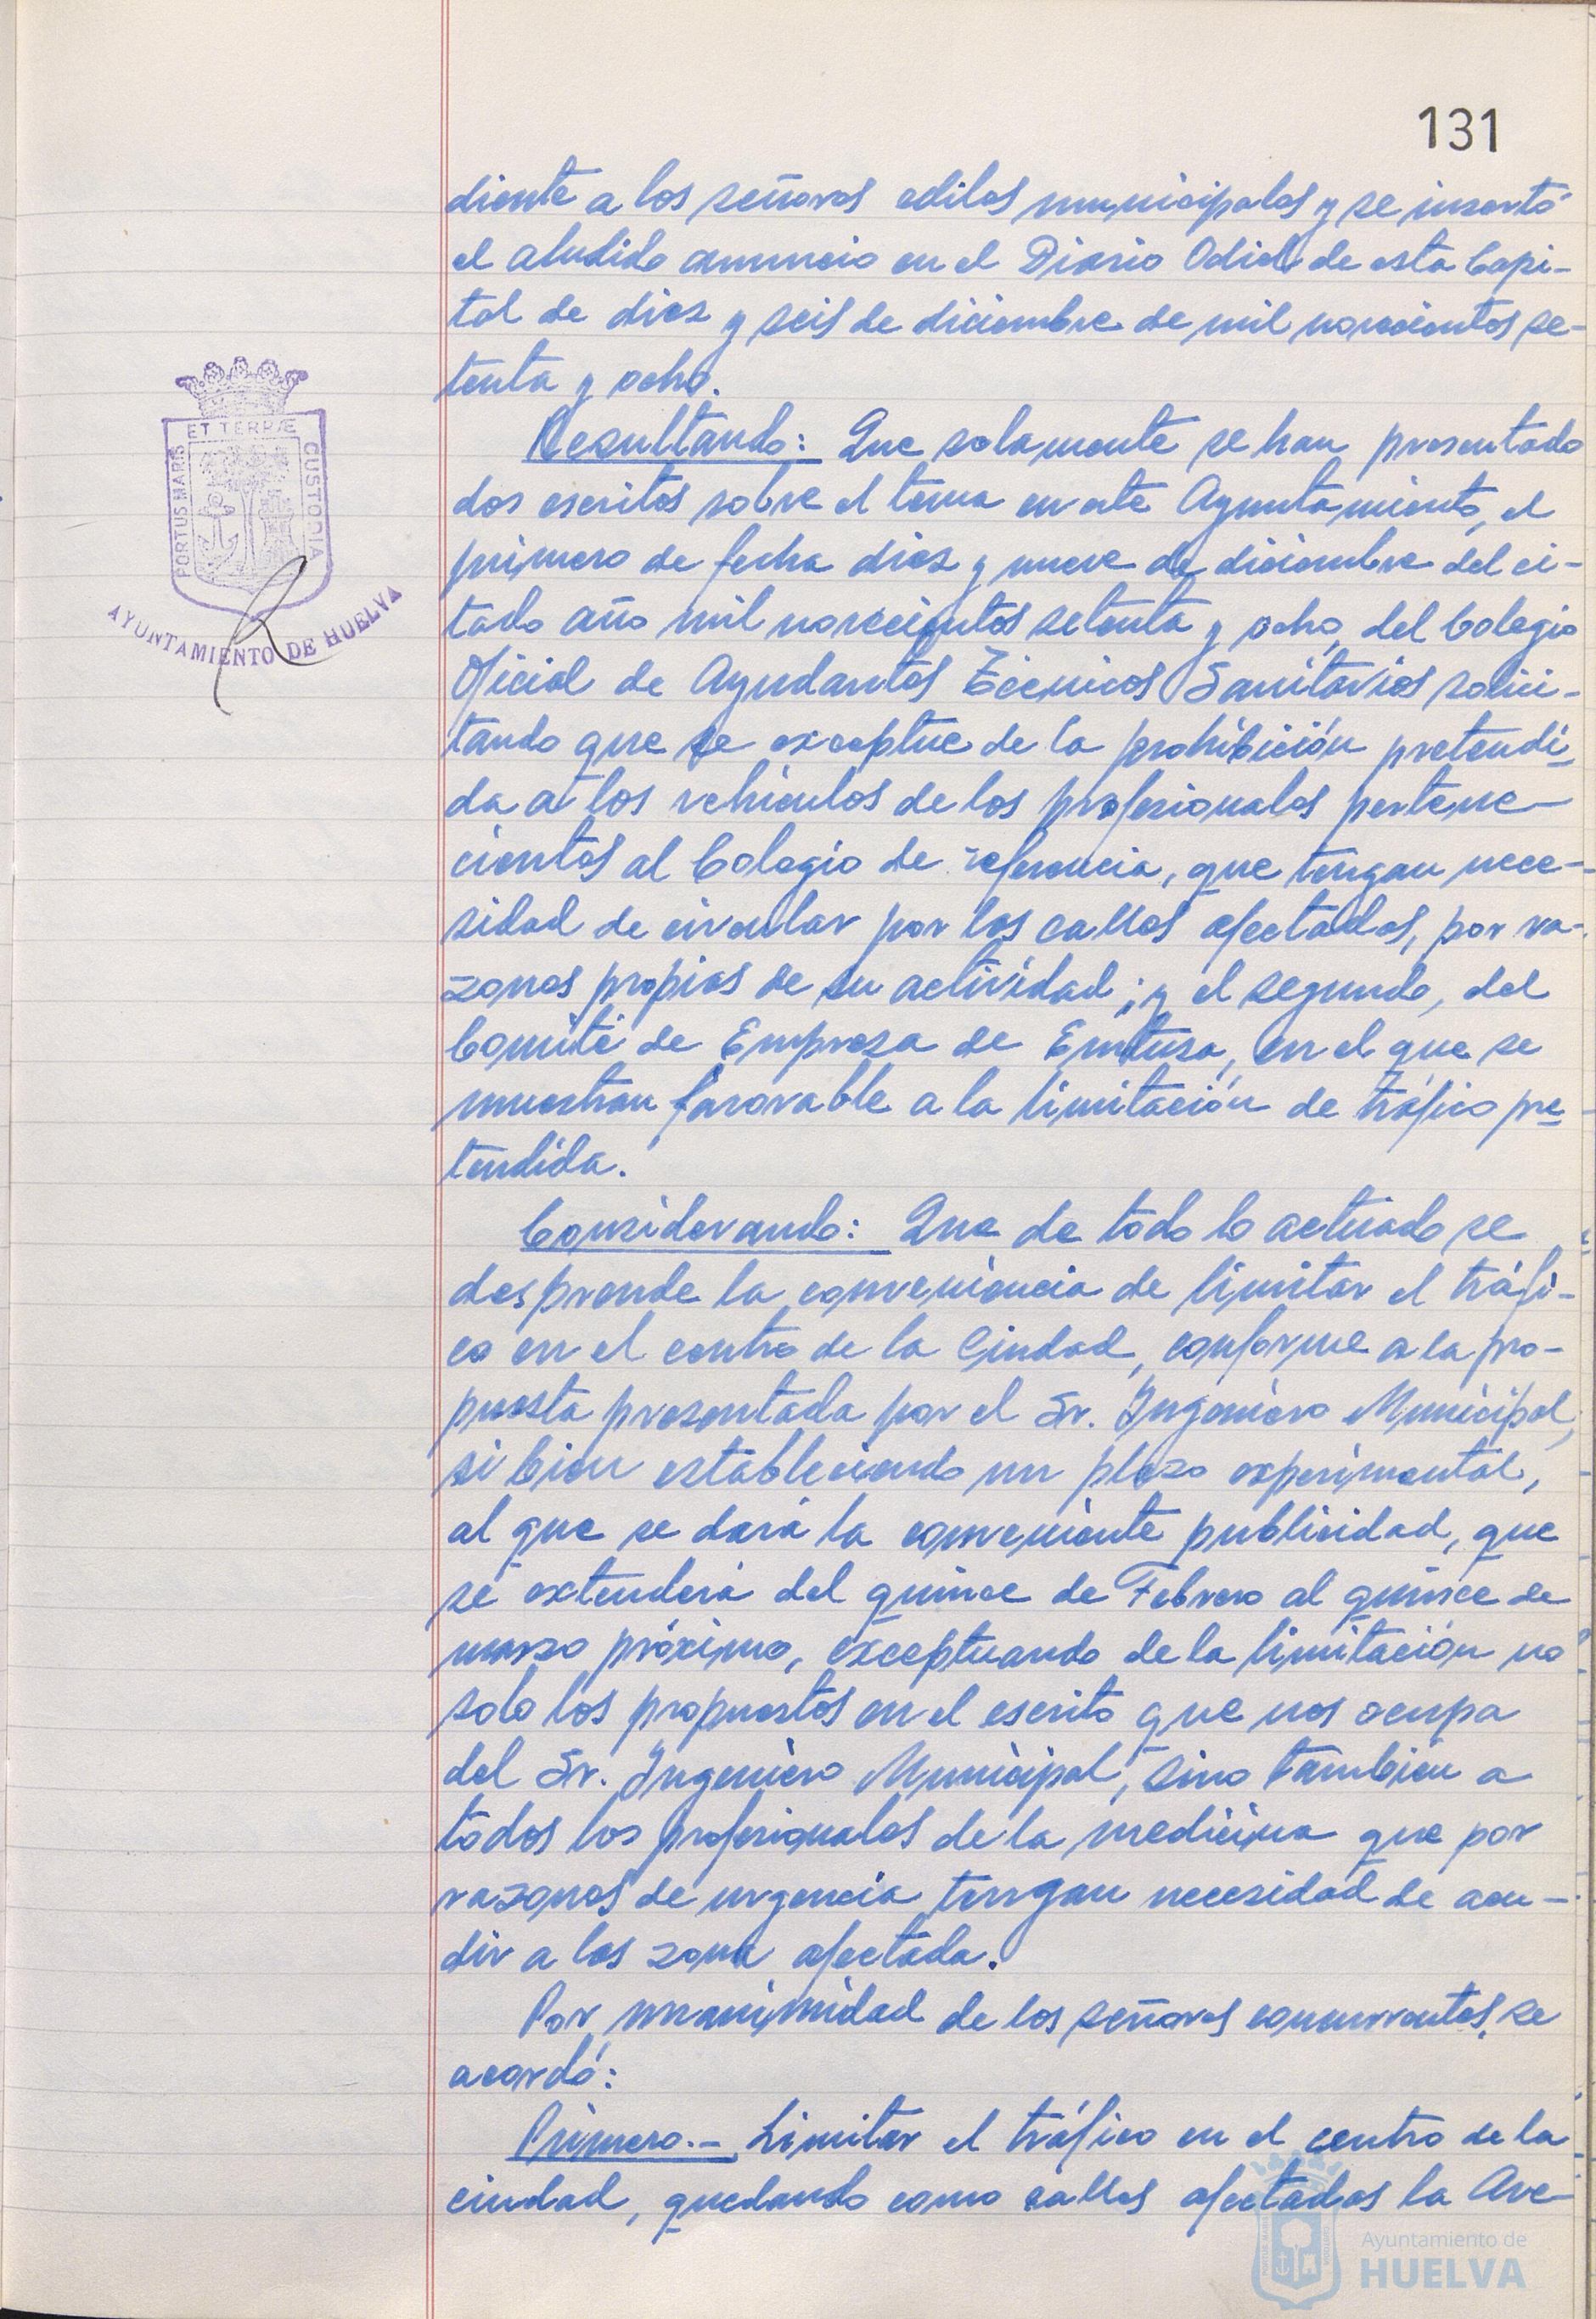 131
diente a los señores ediles municipales y se insertó
el aludido anuncio en el Diario Odiel de esta Capi-
tal de diez y seis de diciembre de mil novecientos se-
tenta y ocho.
Resultando: Que solamente se han presentado
dos escritos sobre el tema en este Ayuntamiento, el
primero de fecha diez y nueve de diciembre del ci-
tado año mil novecientos setenta y ocho, del Colegio
Oficial de Ayudantes Técnicos Sanitarios solici-
tando que se exceptue de la prohibición pretendi-
da a los vehículos de los profesionales pertene-
cientes al Colegio de referencia, que tengan nece-
sidad de circular por las calles afectadas, por ra-
zones propias de su actividad; y el segundo, del
Comité de Empresa de Emtusa, en el que se
muestran favorable a la limitación de tráfico pre-
tendida.
Considerando: Que de todo lo actuado se
desprende la conveniencia de limitar el tráfi-
co en el centro de la Ciudad, conforme a la pro-
puesta presentada por el Sr. Ingeniero Municipal,
si bien estableciendo un plazo experimental,
al que se dará la conveniente publicidad, que
se extenderá del quince de Febrero al quince de
marzo próximo, exceptuando de la limitación no
solo los propuestos en el escrito que nos ocupa
del Sr. Ingeniero Municipal, sino tambien a
todos los profesionales de la medicina que por
razones de urgencia tengan necesidad de acu-
dir a las zona afectada.
Por unanimidad de los señores concurrentes, se
acordó:
Primero.- Limitar el tráfico en el centro de la
ciudad, quedando como calles afectadas la Ave-
PORTUS MARIS ET TERRÆ CUSTODIA
AYUNTAMIENTO DE HUELVA
Ayuntamiento de
HUELVA